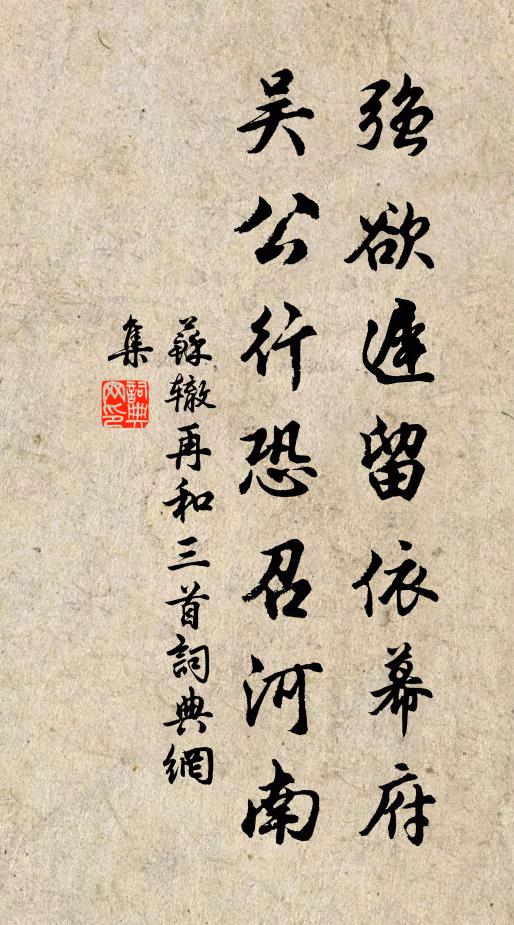 强欲遲留依幕府
吴公行恐召河南
蘇辙再和三首詞典網
集
詞典
网印